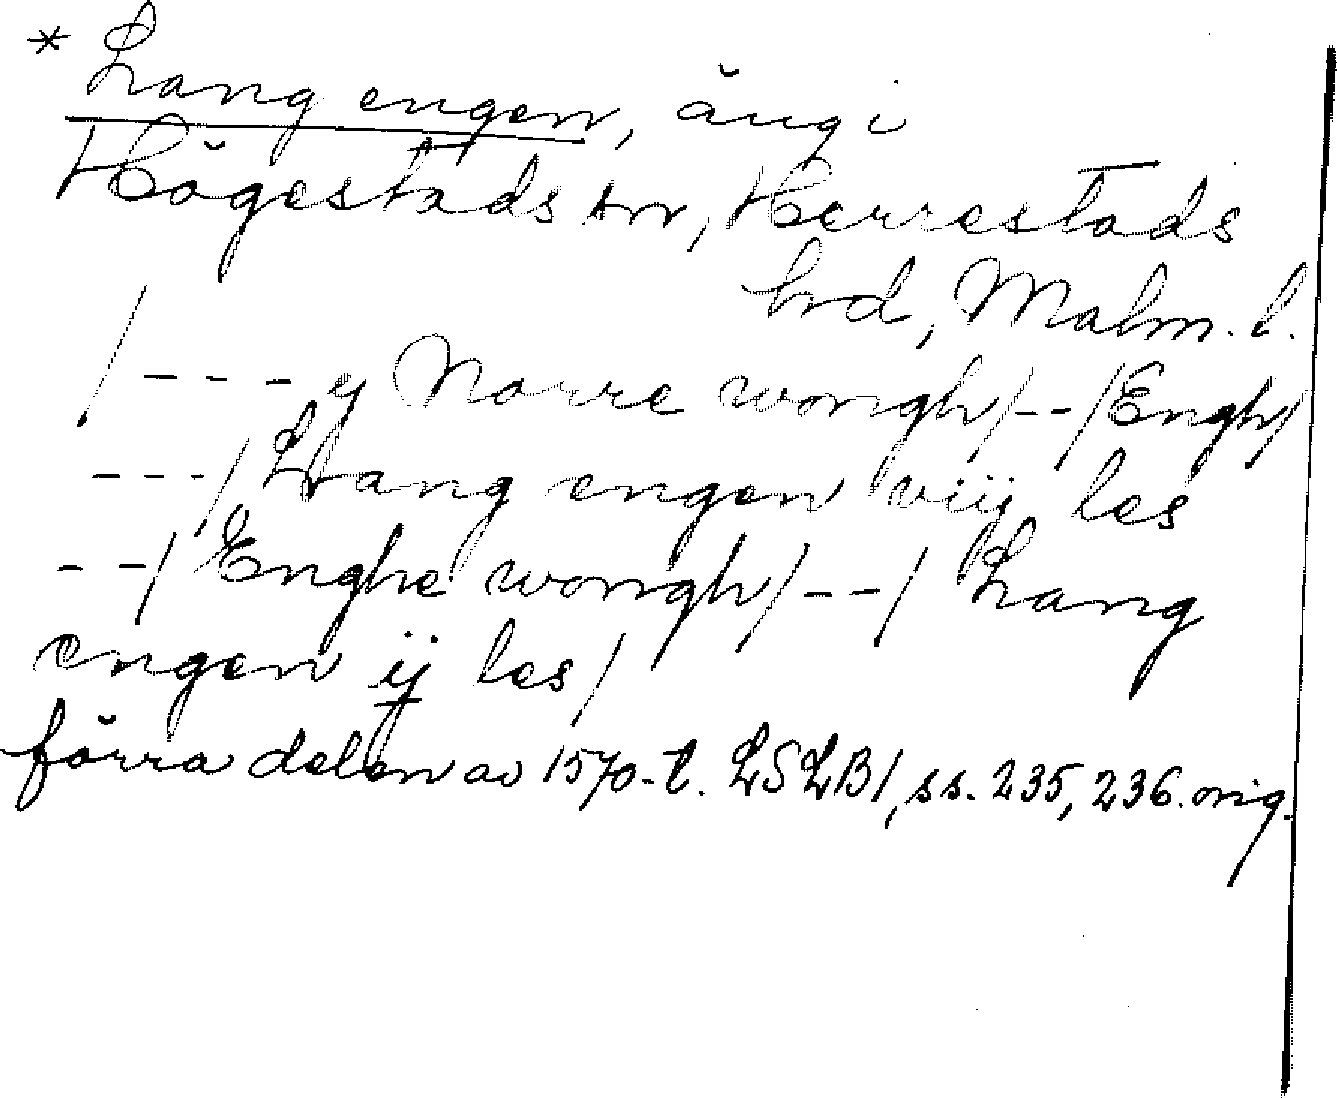 * Lang engen, äng i
Högestads sn, Herrestads
hrd, Malm. l.
/ - - - y Norre wongh / - - / Engh /
- - - / Lang engen viij les
- - / Enghe wongh / - - / Lang
engen ij les /
förra delen av 1570-t. LSLB1, ss. 235, 236. orig.